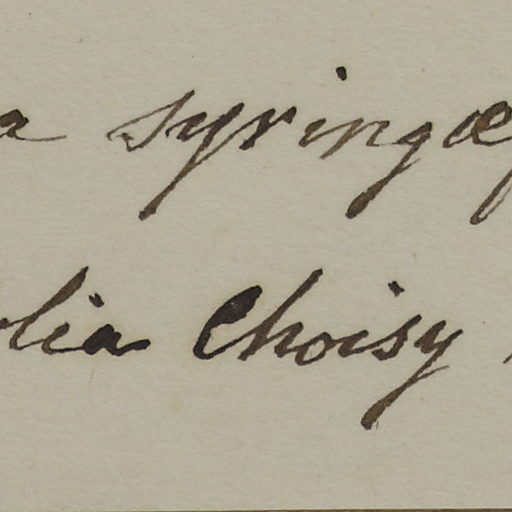 a syringæf
lia Choisy